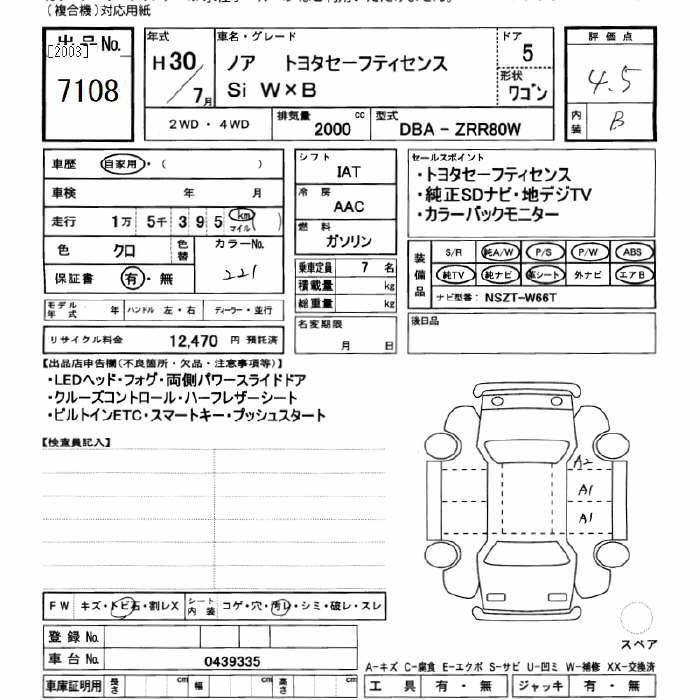 (複合機)対応用紙
出品No.
[2003]
7108
年式
H30/7月
車名・グレード
ノア トヨタセーフティセンス
Si W×B
ドア
5
形状
ワゴン
評価点
4.5
内装
B
2WD・4WD
排気量
2000 cc
型式
DBA - ZRR80W
車歴 自家用・( )
車検 年 月
走行 1万 5千 3 9 5 km マイル ( )
色 クロ 色替 カラーNo.
221
保証書 有・無
モデル年式 年 ハンドル 左・右 ディーラー・並行
リサイクル料金 12,470 円 預託済
シフト
IAT
冷房
AAC
燃料
ガソリン
乗車定員 7 名
積載量 kg
総重量 kg
名変期限
月 日
セールスポイント
・トヨタセーフティセンス
・純正SDナビ・地デジTV
・カラーバックモニター
装備品
S/R 純A/W P/S P/W ABS
純TV 純ナビ 革シート 外ナビ エアB
ナビ型番: NSZT-W66T
後日品
【出品店申告欄(不良箇所・欠品・注意事項等)】
・LEDヘッド・フォグ・両側パワースライドドア
・クルーズコントロール・ハーフレザーシート
・ビルトインETC・スマートキー・プッシュスタート
【検査員記入】
A2
A1
A1
FW キズ・トビ石・割レX シート内装 コゲ・穴・汚レ・シミ・破レ・スレ
登録No.
車台No. 0439335
車庫証明用 長さ cm 幅 cm 高さ cm
スペア
A-キズ C-腐食 E-エクボ S-サビ U-凹ミ W-補修 XX-交換済
工具 有・無 ジャッキ 有・無